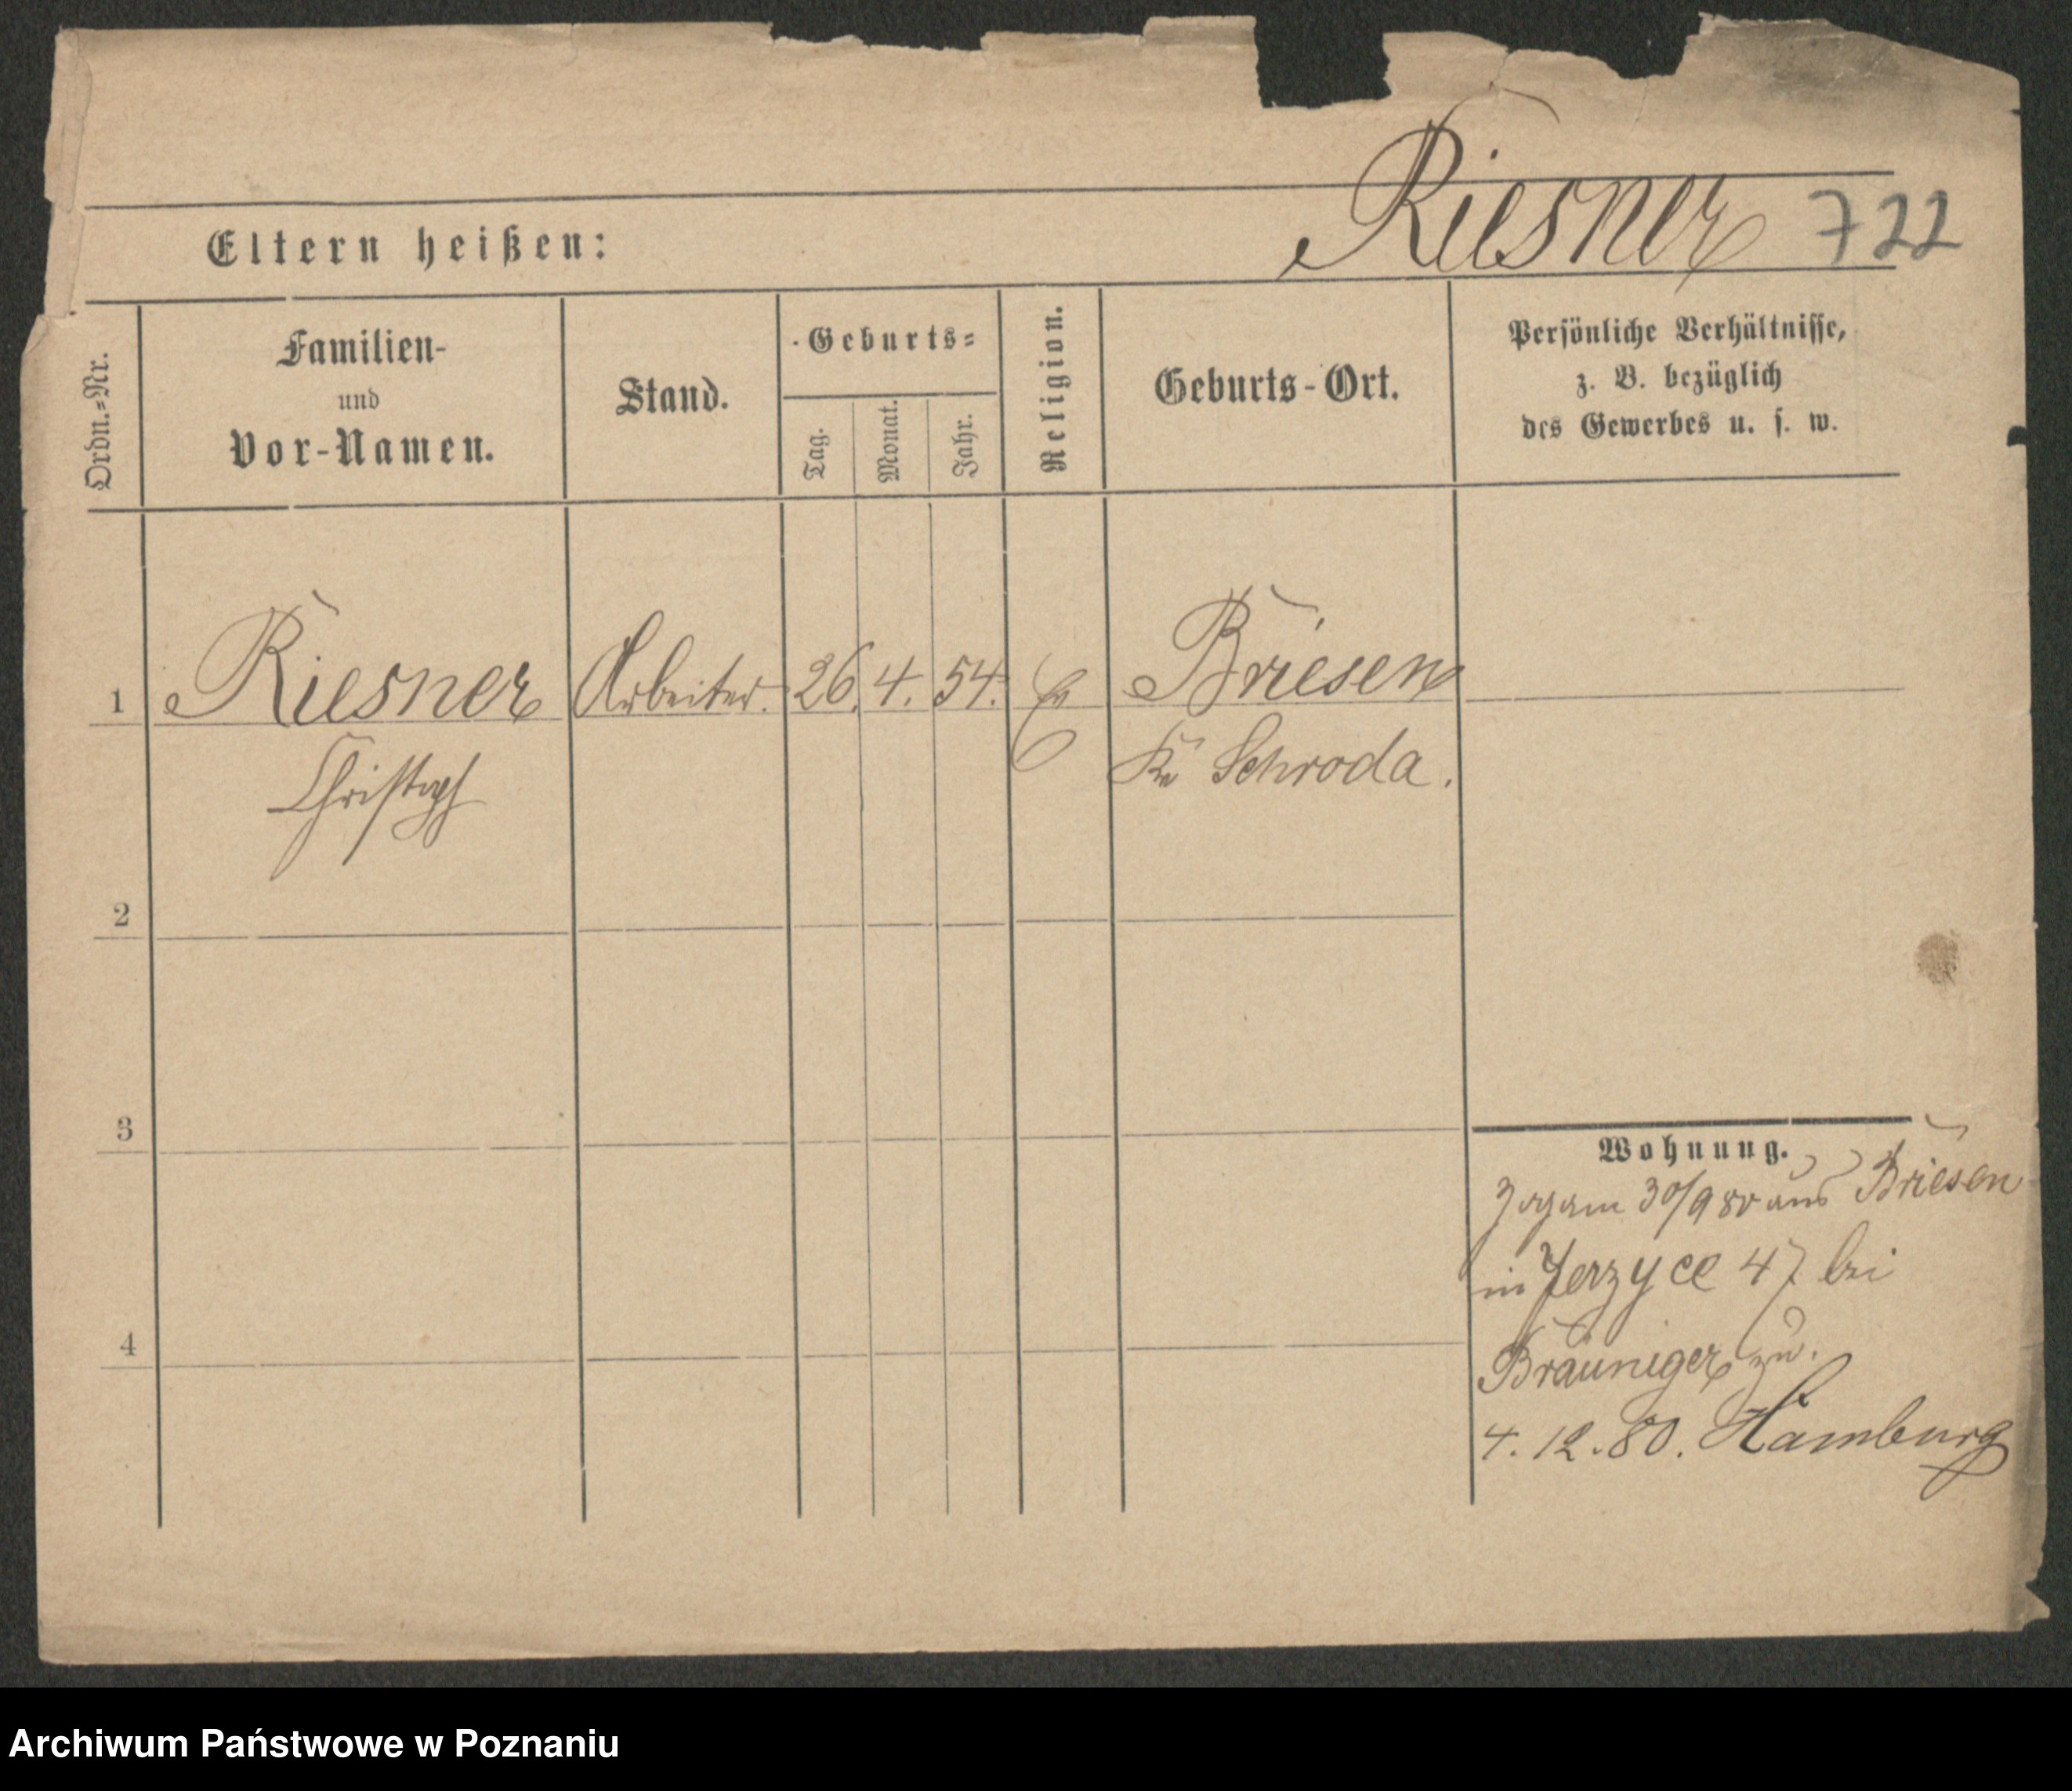 Riesner 722
Eltern heißen:
Ordn.=Nr.
Familien-
und
Vor-Namen.
Stand.
Geburts=
Tag.
Monat.
Jahr.
Religion.
Geburts-Ort.
Persönliche Verhältnisse,
z. B. bezüglich
des Gewerbes u. s. w.
1 Riesner Arbeiter. 26. 4. 54. Briesen
Christoph Kr Schroda.
2
3
4
Wohnung.
Zog am 30/9 80 aus Briesen
in Jerzyce 47 bei
Bräuniger zu.
4. 12. 80. Hamburg
Archiwum Państwowe w Poznaniu